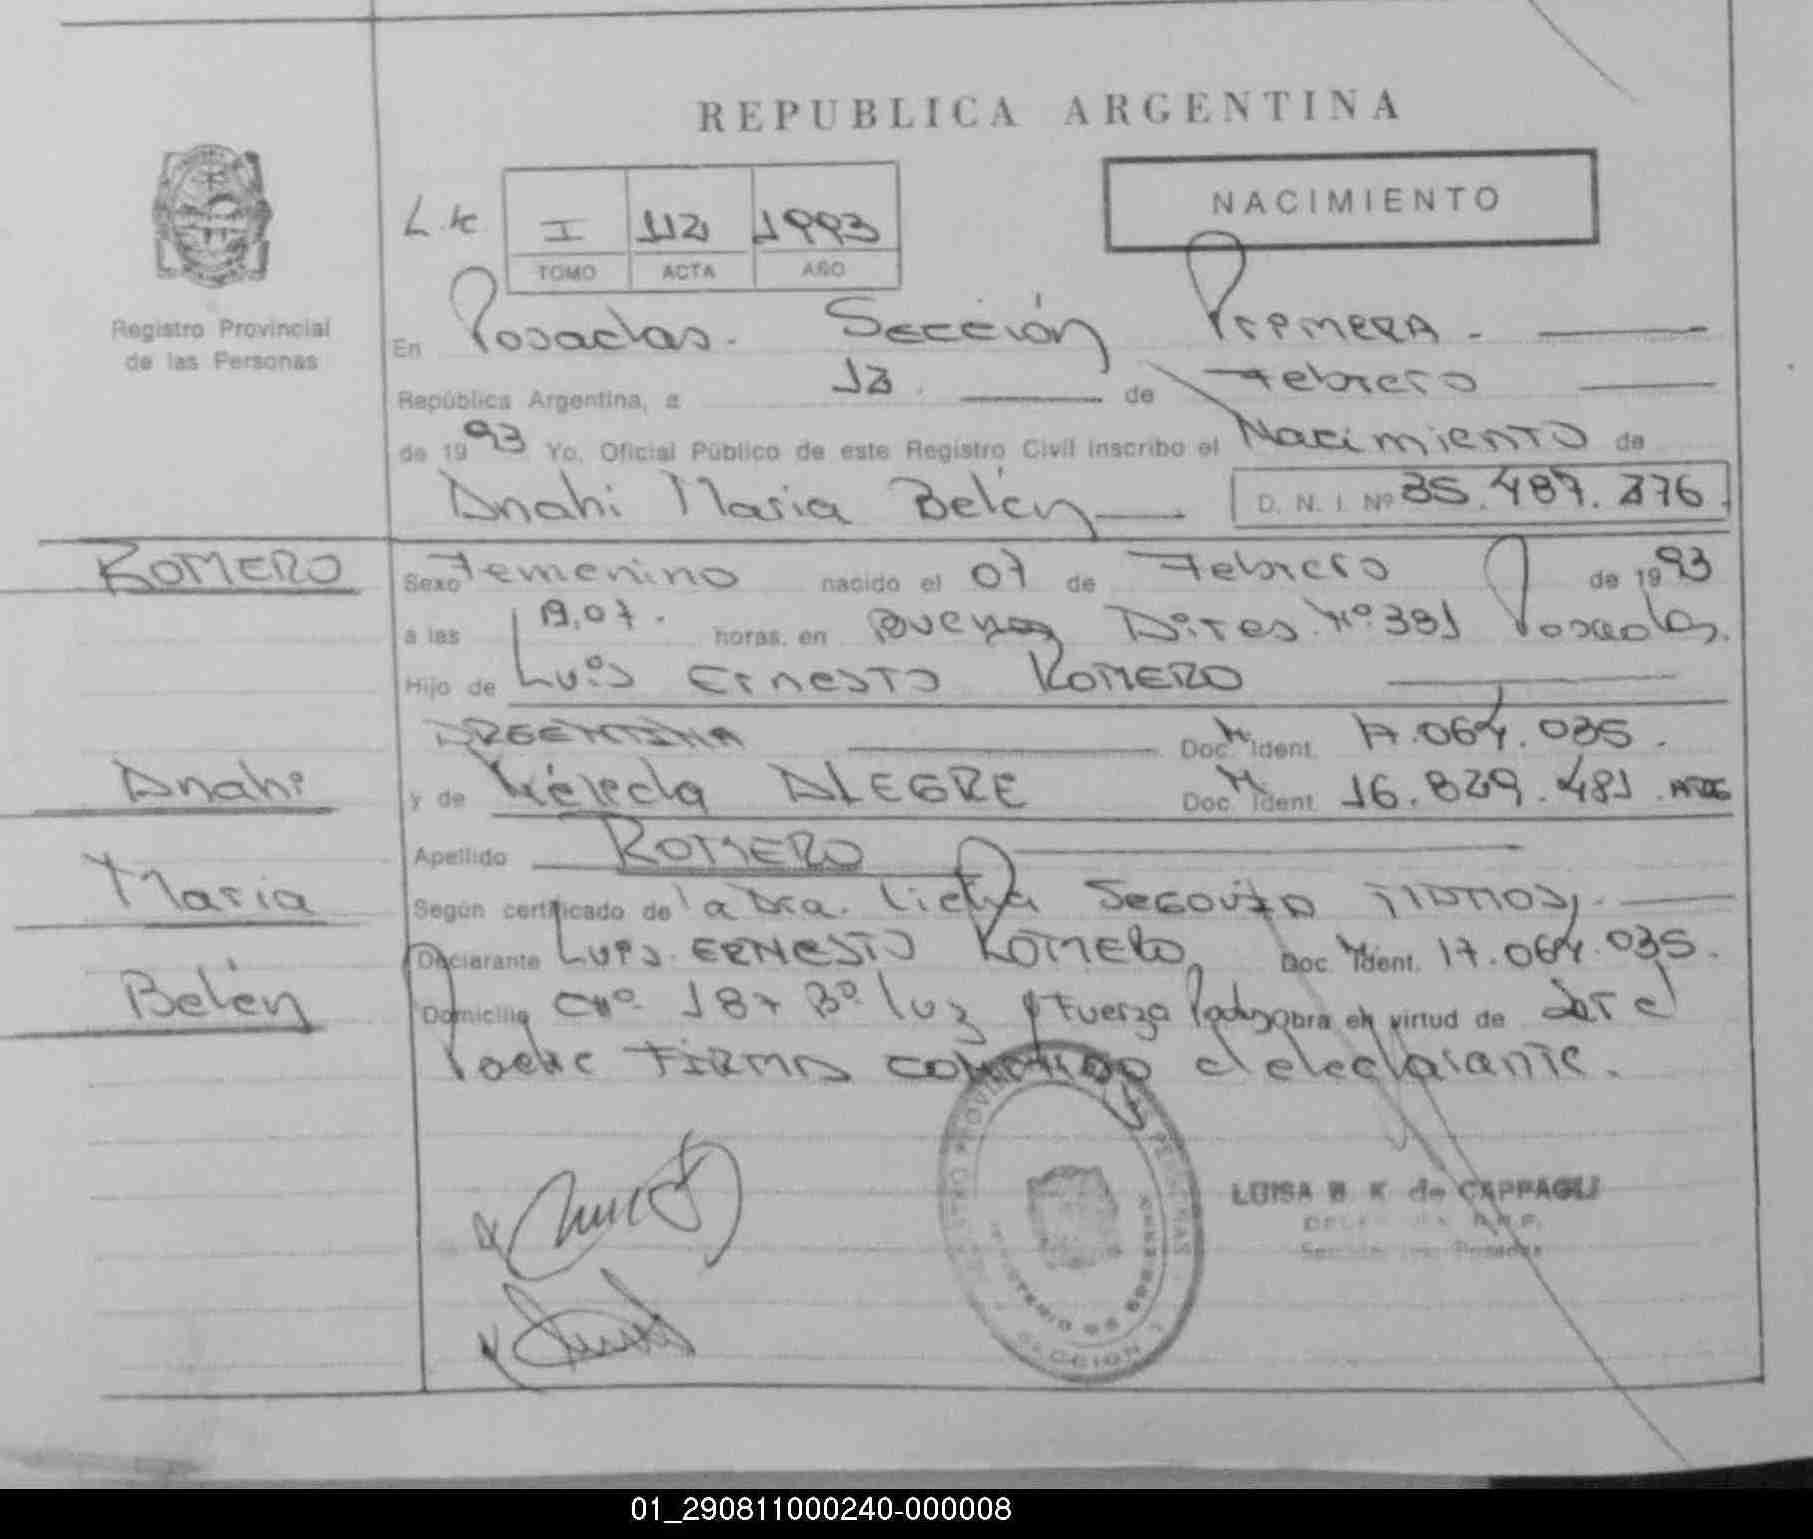 REPUBLICA ARGENTINA
NACIMIENTO
I 112 1993
TOMO ACTA AÑO
Registro Provincial
de las Personas
En Posadas. Sección Primera.
República Argentina, a 12 de Febrero
de 1993 Yo, Oficial Público de este Registro Civil inscribo el Nacimiento de
Anahi Maria Belén D. N. I. Nº 35.487.376
ROMERO
Sexo Femenino nacido el 07 de Febrero de 1993
a las horas. en Buenos Aires Nº 331 Posadas.
Hijo de Luis Ernesto ROMERO
ARGENTINA Doc. Ident. 17.064.035.
Anahi
y de ALEGRE Doc. Ident. 16.829.481. ARG
Apellido ROMERO
Maria
Según certificado de la Dra. SEGOVIA
Declarante LUIS ERNESTO ROMERO Doc. Ident. 17.064.035.
Belén
Domicilio 187 Bº Luz y Fuerza Posadas obra en virtud de ser el
Padre FIRMA conmigo el declarante.
LUISA B K de CAPPAGLI
01_290811000240-000008